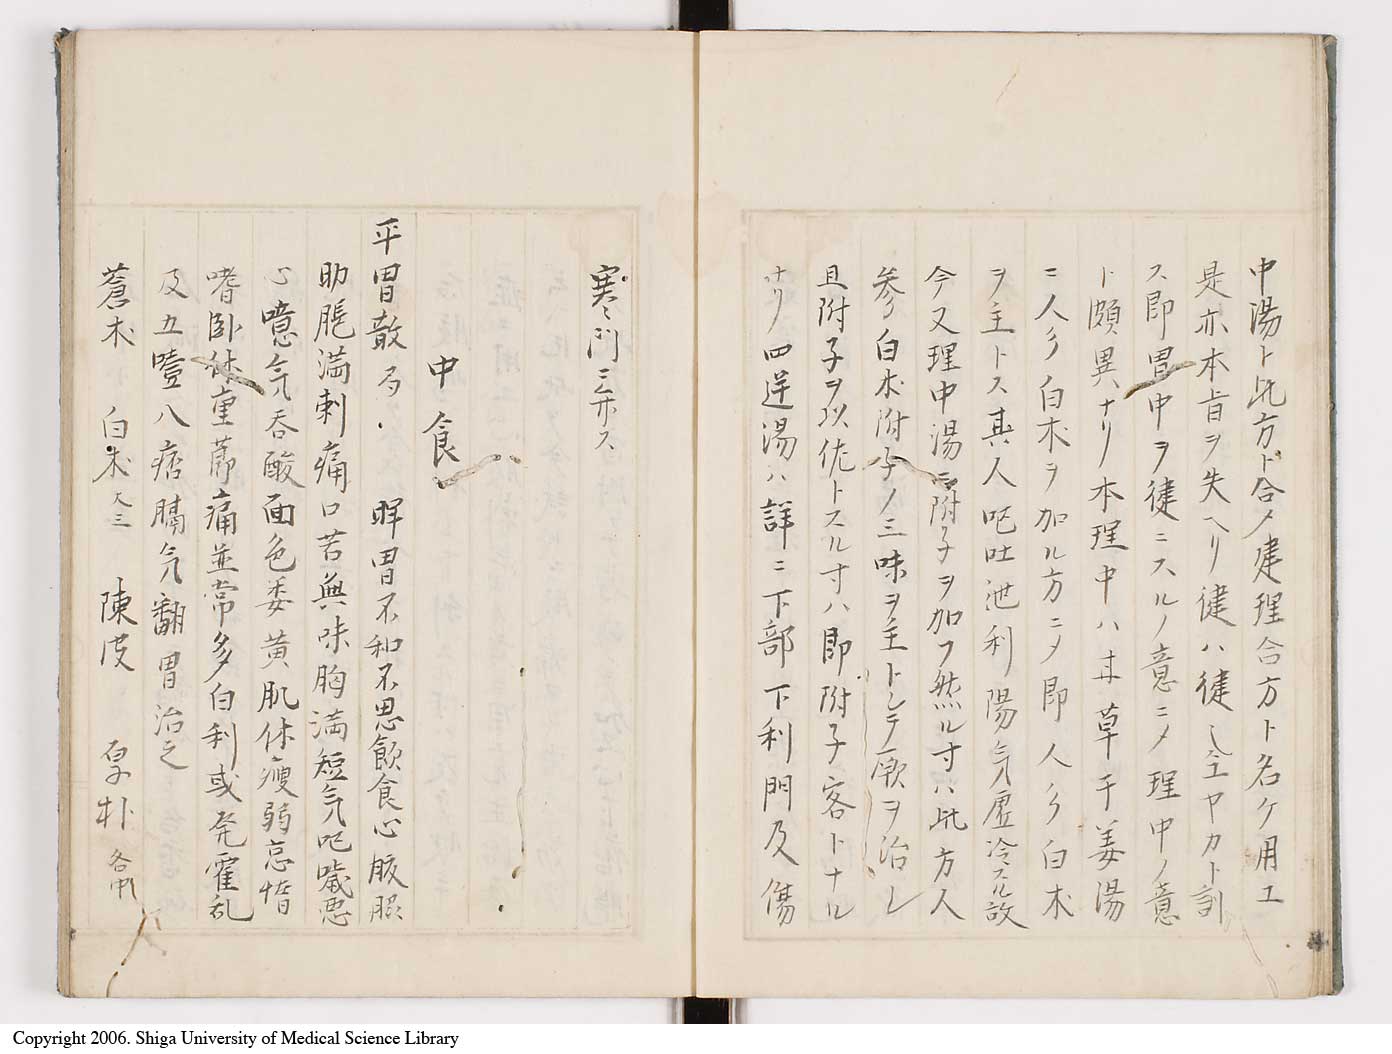 中湯ト此方ト合メ建理合方ト名ケ用エ
是亦本旨ヲ失ヘリ健ハ健也スヤカト訓
ス即胃中ヲ健ニスルノ意ニメ理中ノ意
ト頗異ナリ本理中ハ甘草干姜湯
ニ人參白朮ヲ加ル方ニメ即人參白朮
ヲ主トス其人吃吐泄利陽气虚冷スル故
今又理中湯ニ附子ヲ加フ然ル寸ハ此方人
參白朮附子ノ三味ヲ主トシテ厥ヲ治レ
且附子ヲ以佐トスル寸ハ即附子客トナル
ナリ四逆湯ハ詳ニ下部下利門及傷
寒門ニ弁ス
中食
平胃散局 脾胃不和不思飲食心腹脹
肋脹満刺痛口苦無味胸満短气吃噦悪
心噫气吞酸面色委黄肌体瘦弱怠惰
嗜卧体重節痛並常多自利或発霍乱
及五噎八痞膈气翻胃治之
蒼朮 白朮 陳皮 厚朴
Copyright 2006. Shiga University of Medical Science Library